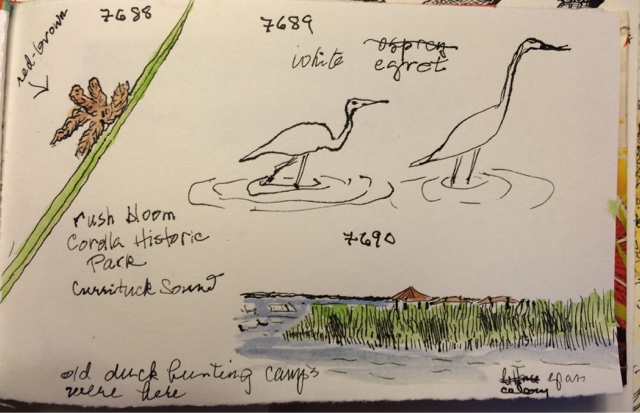 7688
red-brown
7689
white osprey
egret
rush bloom
Corolla Historic
Park
Currituck Sound
7690
old duck hunting camps
were here